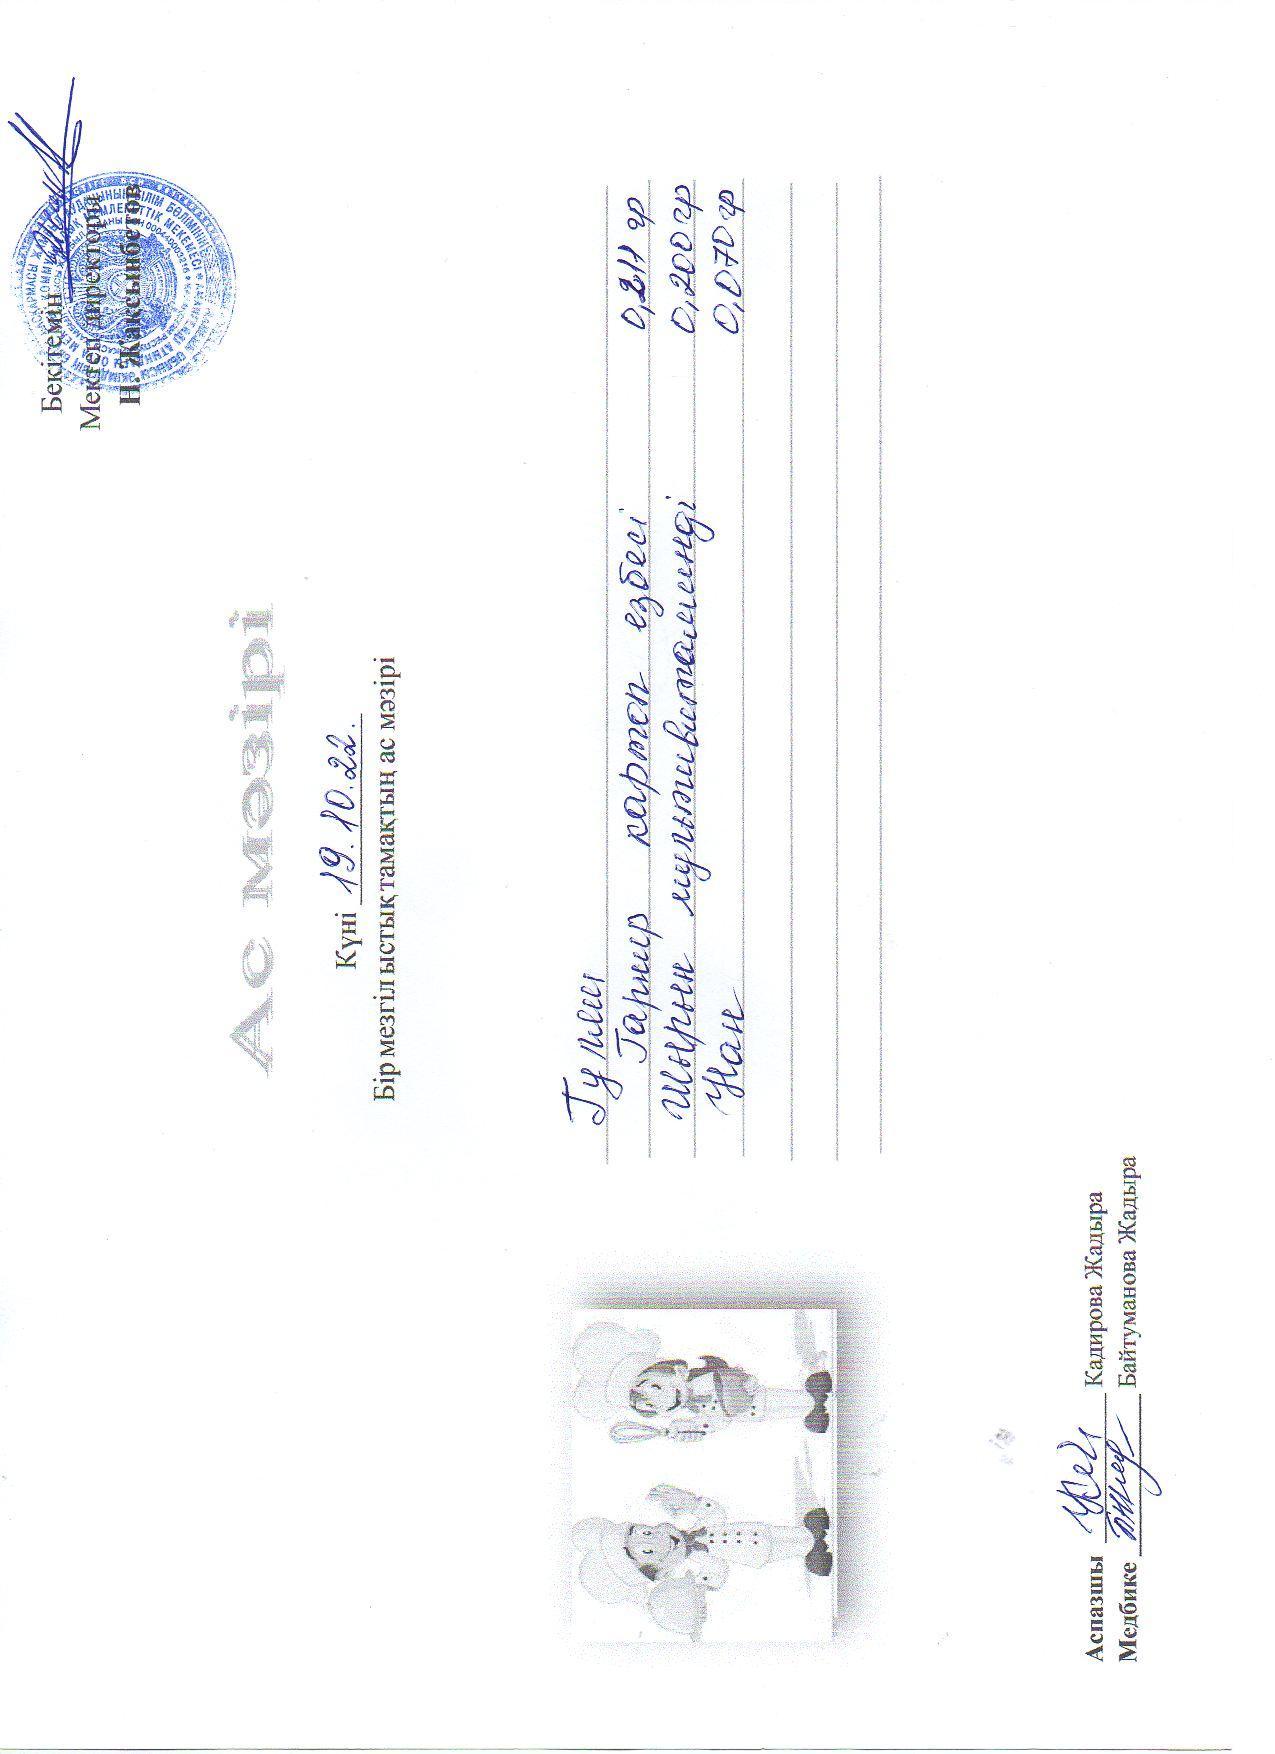 Бекітемін
Мектеп директоры
Н. Жаксынбетов
Ас мәзірі
Күні 19.10.22.
Бір мезгіл ыстық тамақтың ас мәзірі
Гуляш
Гарнир картоп езбесі 0,211 гр
Шырын мультивитаминді 0,200 гр
Нан 0,070 гр
Аспазшы Кадирова Жадыра
Медбике Байтуманова Жадыра